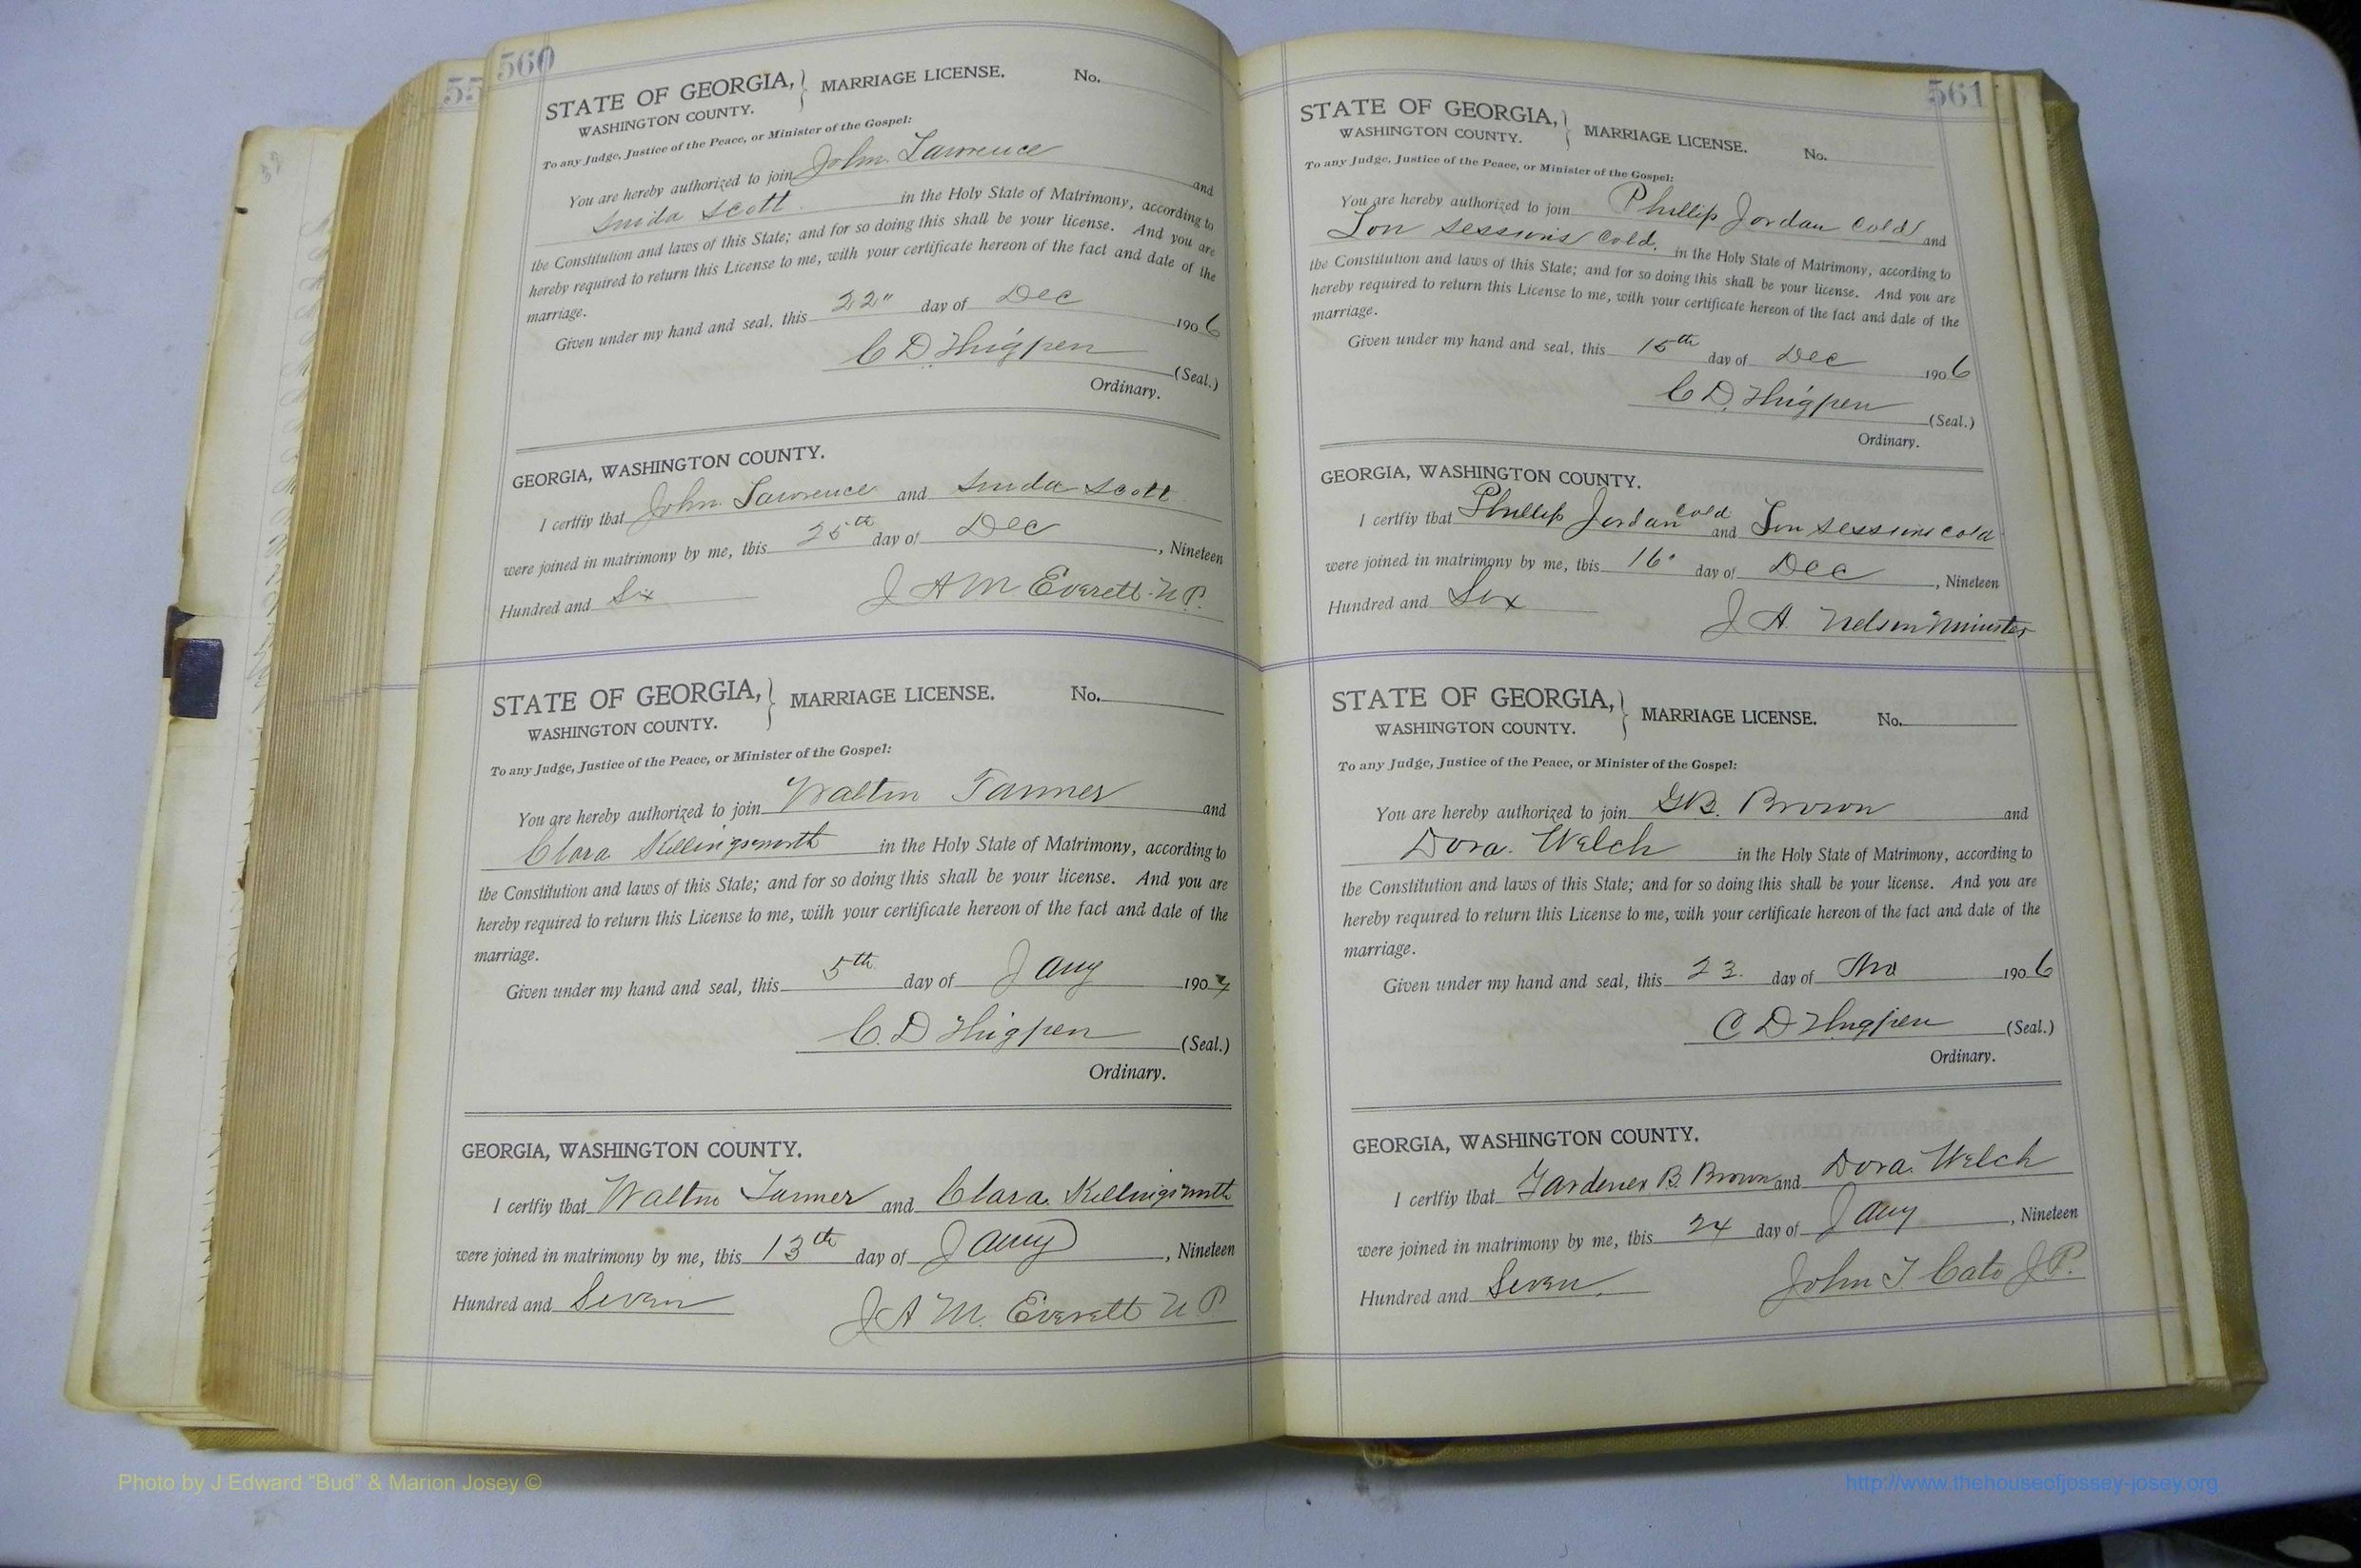 55
560
STATE OF GEORGIA, } MARRIAGE LICENSE. No.
WASHINGTON COUNTY.
To any Judge, Justice of the Peace, or Minister of the Gospel:
You are hereby authorized to join John Lawrence and
Scott in the Holy State of Matrimony, according to
the Constitution and laws of this State; and for so doing this shall be your license. And you are
hereby required to return this License to me, with your certificate hereon of the fact and date of the
marriage.
Given under my hand and seal, this 22" day of Dec 1906
C D Thigpen (Seal.)
Ordinary.
GEORGIA, WASHINGTON COUNTY.
I certfiy that John Lawrence and Scott
were joined in matrimony by me, this 25th day of Dec, Nineteen
Hundred and Six J A M Everett N P.
STATE OF GEORGIA, } MARRIAGE LICENSE. No.
WASHINGTON COUNTY.
To any Judge, Justice of the Peace, or Minister of the Gospel:
You are hereby authorized to join Walton Tanner and
Clara Killingsworth in the Holy State of Matrimony, according to
the Constitution and laws of this State; and for so doing this shall be your license. And you are
hereby required to return this License to me, with your certificate hereon of the fact and date of the
marriage.
Given under my hand and seal, this 5th day of Jany 1907
C. D Thigpen (Seal.)
Ordinary.
GEORGIA, WASHINGTON COUNTY.
I certfiy that Walton Tanner and Clara Killingsworth
were joined in matrimony by me, this 13th day of Jany, Nineteen
Hundred and Seven J A M. Everett N P.
561
STATE OF GEORGIA, } MARRIAGE LICENSE. No.
WASHINGTON COUNTY.
To any Judge, Justice of the Peace, or Minister of the Gospel:
You are hereby authorized to join Phillip Jordan Cold and
Lon Sessions Cold. in the Holy State of Matrimony, according to
the Constitution and laws of this State; and for so doing this shall be your license. And you are
hereby required to return this License to me, with your certificate hereon of the fact and date of the
marriage.
Given under my hand and seal, this 15th day of Dec 1906
C D. Thigpen (Seal.)
Ordinary.
GEORGIA, WASHINGTON COUNTY.
I certfiy that Phillip Jordan Cold and Lon Sessions Cold
were joined in matrimony by me, this 16" day of Dec, Nineteen
Hundred and Six J A. Nelson Minister
STATE OF GEORGIA, } MARRIAGE LICENSE. No.
WASHINGTON COUNTY.
To any Judge, Justice of the Peace, or Minister of the Gospel:
You are hereby authorized to join G B. Brown and
Dora. Welch in the Holy State of Matrimony, according to
the Constitution and laws of this State; and for so doing this shall be your license. And you are
hereby required to return this License to me, with your certificate hereon of the fact and date of the
marriage.
Given under my hand and seal, this 23. day of 1906
C D Thigpen (Seal.)
Ordinary.
GEORGIA, WASHINGTON COUNTY.
I certfiy that Gardener B. Brown and Dora. Welch
were joined in matrimony by me, this 24 day of Jany, Nineteen
Hundred and Seven. John T Cato J P.
Photo by J Edward "Bud" & Marion Josey ©
http://www.thehouseofjossey-josey.org